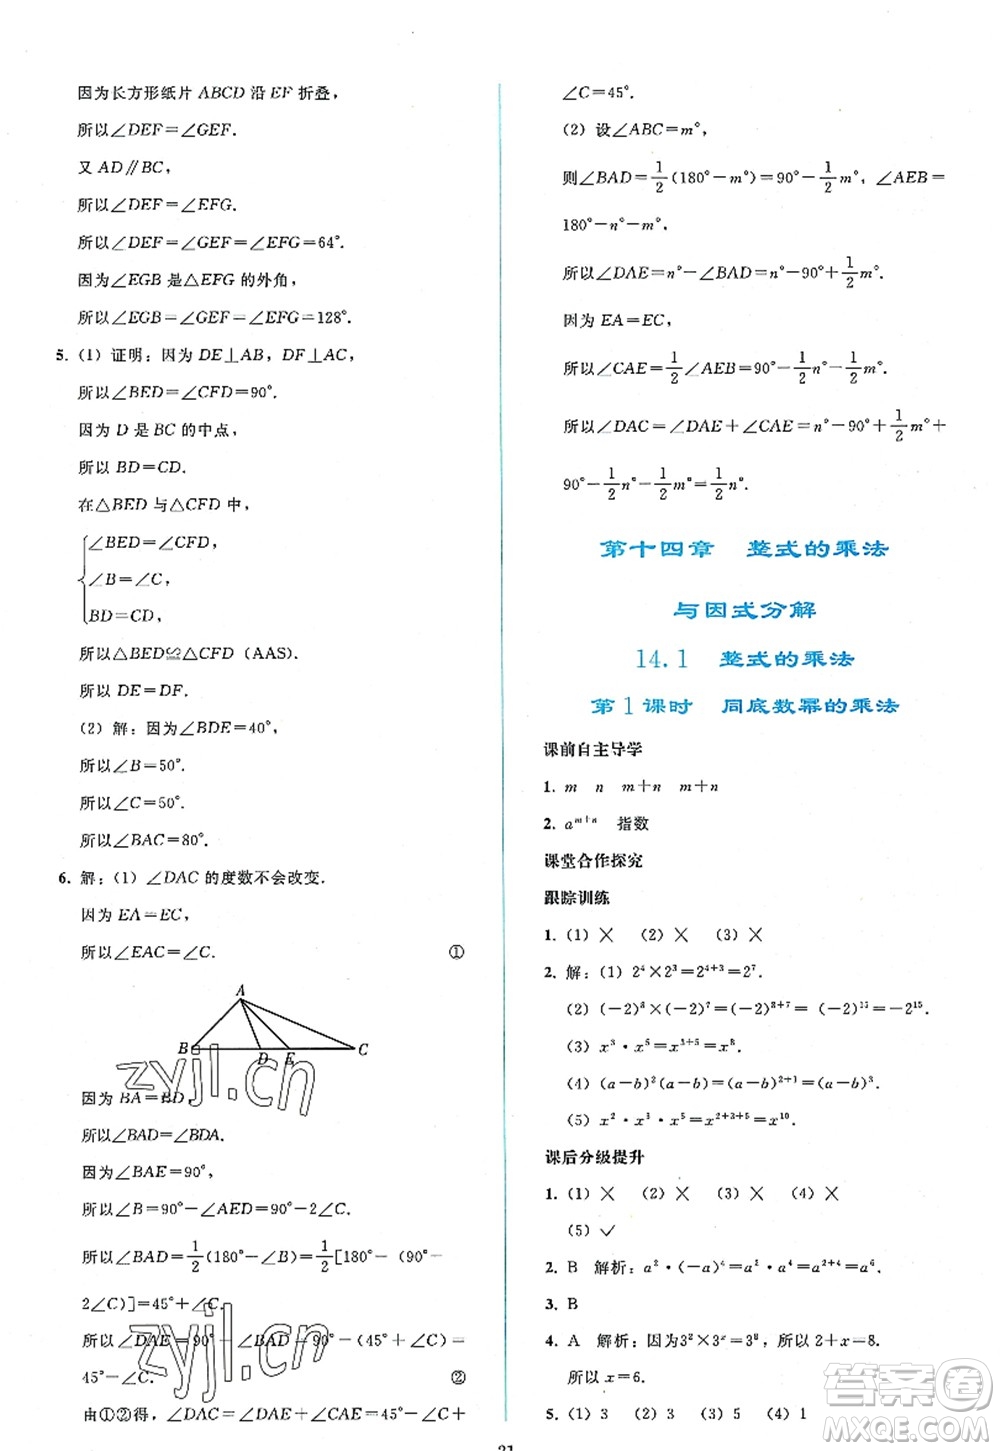 因为长方形纸片 ABCD 沿 EF 折叠,
所以∠DEF=∠GEF.
又 AD∥BC,
所以∠DEF=∠EFG.
所以∠DEF=∠GEF=∠EFG=64°.
因为∠EGB 是△EFG 的外角,
所以∠EGB=∠GEF=∠EFG=128°.
5. (1) 证明:因为 DE⊥AB, DF⊥AC,
所以∠BED=∠CFD=90°.
因为 D 是 BC 的中点,
所以 BD=CD.
在△BED 与△CFD 中,
∠BED=∠CFD,
∠B=∠C,
BD=CD,
所以△BED≌△CFD (AAS).
所以 DE=DF.
(2) 解:因为∠BDE=40°,
所以∠B=50°.
所以∠C=50°.
所以∠BAC=80°.
6. 解:(1) ∠DAC 的度数不会改变.
因为 EA=EC,
所以∠EAC=∠C. ①
A
B D E C
因为 BA=BD,
所以∠BAD=∠BDA.
因为∠BAE=90°,
所以∠B=90°-∠AED=90°-2∠C.
所以∠BAD=1/2(180°-∠B)=1/2[180°-(90°-
2∠C)]=45°+∠C.
所以∠DAE=90°-∠BAD=90°-(45°+∠C)=
45°-∠C. ②
由①②得,∠DAC=∠DAE+∠CAE=45°-∠C+
∠C=45°.
(2) 设∠ABC=m°,
则∠BAD=1/2(180°-m°)=90°-1/2m°, ∠AEB=
180°-n°-m°.
所以∠DAE=n°-∠BAD=n°-90°+1/2m°.
因为 EA=EC,
所以∠CAE=1/2∠AEB=90°-1/2n°-1/2m°.
所以∠DAC=∠DAE+∠CAE=n°-90°+1/2m°+
90°-1/2n°-1/2m°=1/2n°.
第十四章 整式的乘法
与因式分解
14.1 整式的乘法
第1课时 同底数幂的乘法
课前自主导学
1. m n m+n m+n
2. a^{m+n} 指数
课堂合作探究
跟踪训练
1. (1) × (2) × (3) ×
2. 解:(1) 2⁴×2³=2^{4+3}=2⁷.
(2) (-2)⁸×(-2)⁷=(-2)^{8+7}=(-2)¹⁵=-2¹⁵.
(3) x³·x⁵=x^{3+5}=x⁸.
(4) (a-b)²(a-b)=(a-b)^{2+1}=(a-b)³.
(5) x²·x³·x⁵=x^{2+3+5}=x¹⁰.
课后分级提升
1. (1) × (2) × (3) × (4) ×
(5) ✓
2. B 解析:a²·(-a)⁴=a²·a⁴=a^{2+4}=a⁶.
3. B
4. A 解析:因为3²×3ˣ=3⁸,所以 2+x=8.
所以 x=6.
5. (1) 3 (2) 5 (3) 7 (4) 1
21
zyjl.cn
zyjl.cn
答案圈